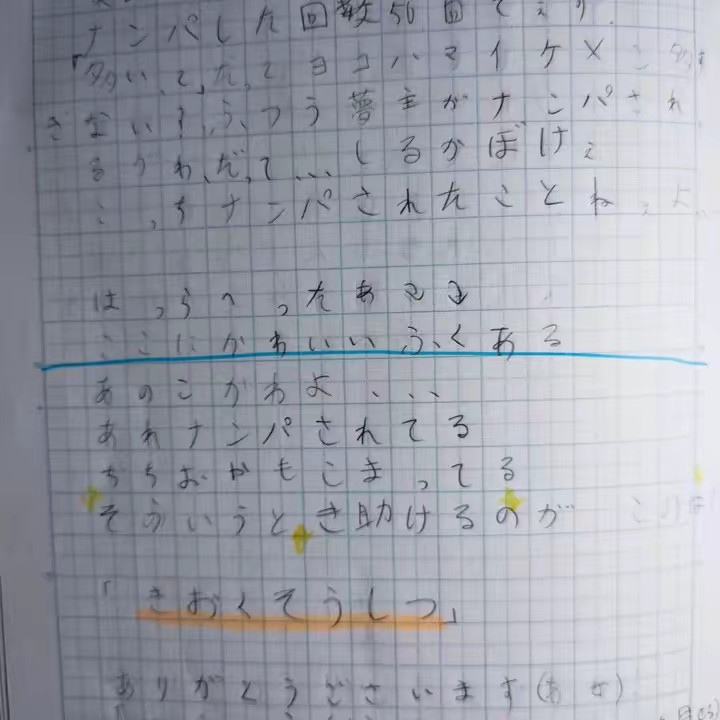 ナンパした回数50回でぇす
「多い、て、た、てヨコハマイケメン多
ぎない?ふ、つう夢主がナンパされ
るうわ、だ、て...しるかぼけぇ
こっちナンパされたことねっよ
はっらへったあ
ここにかわいいふくある
あのこかわよ...
あれナンパされてる
ちちおかもこまってる
そういうとき助けるのが この
「きおくそうしつ」
ありがとうございます(あせ)